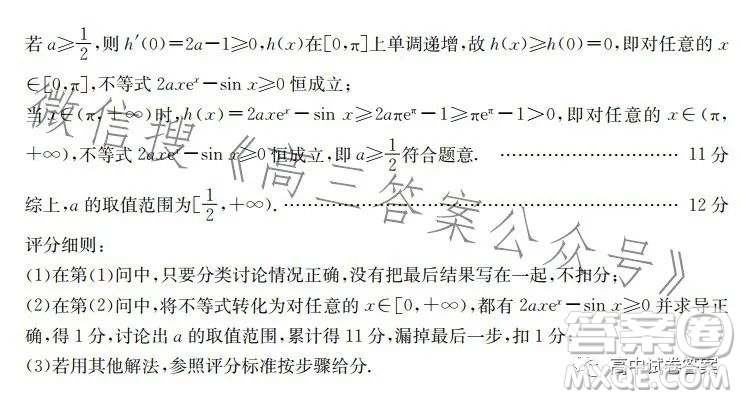 若 a≥1/2,则 h′(0)=2a−1≥0,h(x)在[0,π]上单调递增,故 h(x)≥h(0)=0,即对任意的 x
∈[0,π],不等式 2axeˣ−sin x≥0 恒成立;
当 x∈(π,+∞)时,h(x)=2axeˣ−sin x≥2aπe^π−1≥πe^π−1>0,即对任意的 x∈(π,
+∞),不等式 2axeˣ−sin x≥0 恒成立,即 a≥1/2 符合题意. …………………………… 11 分
综上,a 的取值范围为[1/2,+∞). …………………………………………………… 12 分
评分细则:
(1)在第(1)问中,只要分类讨论情况正确,没有把最后结果写在一起,不扣分;
(2)在第(2)问中,将不等式转化为对任意的 x∈[0,+∞),都有 2axeˣ−sin x≥0 并求导正
确,得 1 分,讨论出 a 的取值范围,累计得 11 分,漏掉最后一步,扣 1 分;
(3)若用其他解法,参照评分标准按步骤给分.
微信搜《高三答案公众号》
答案圈
高中试卷答案
MXQE.COM